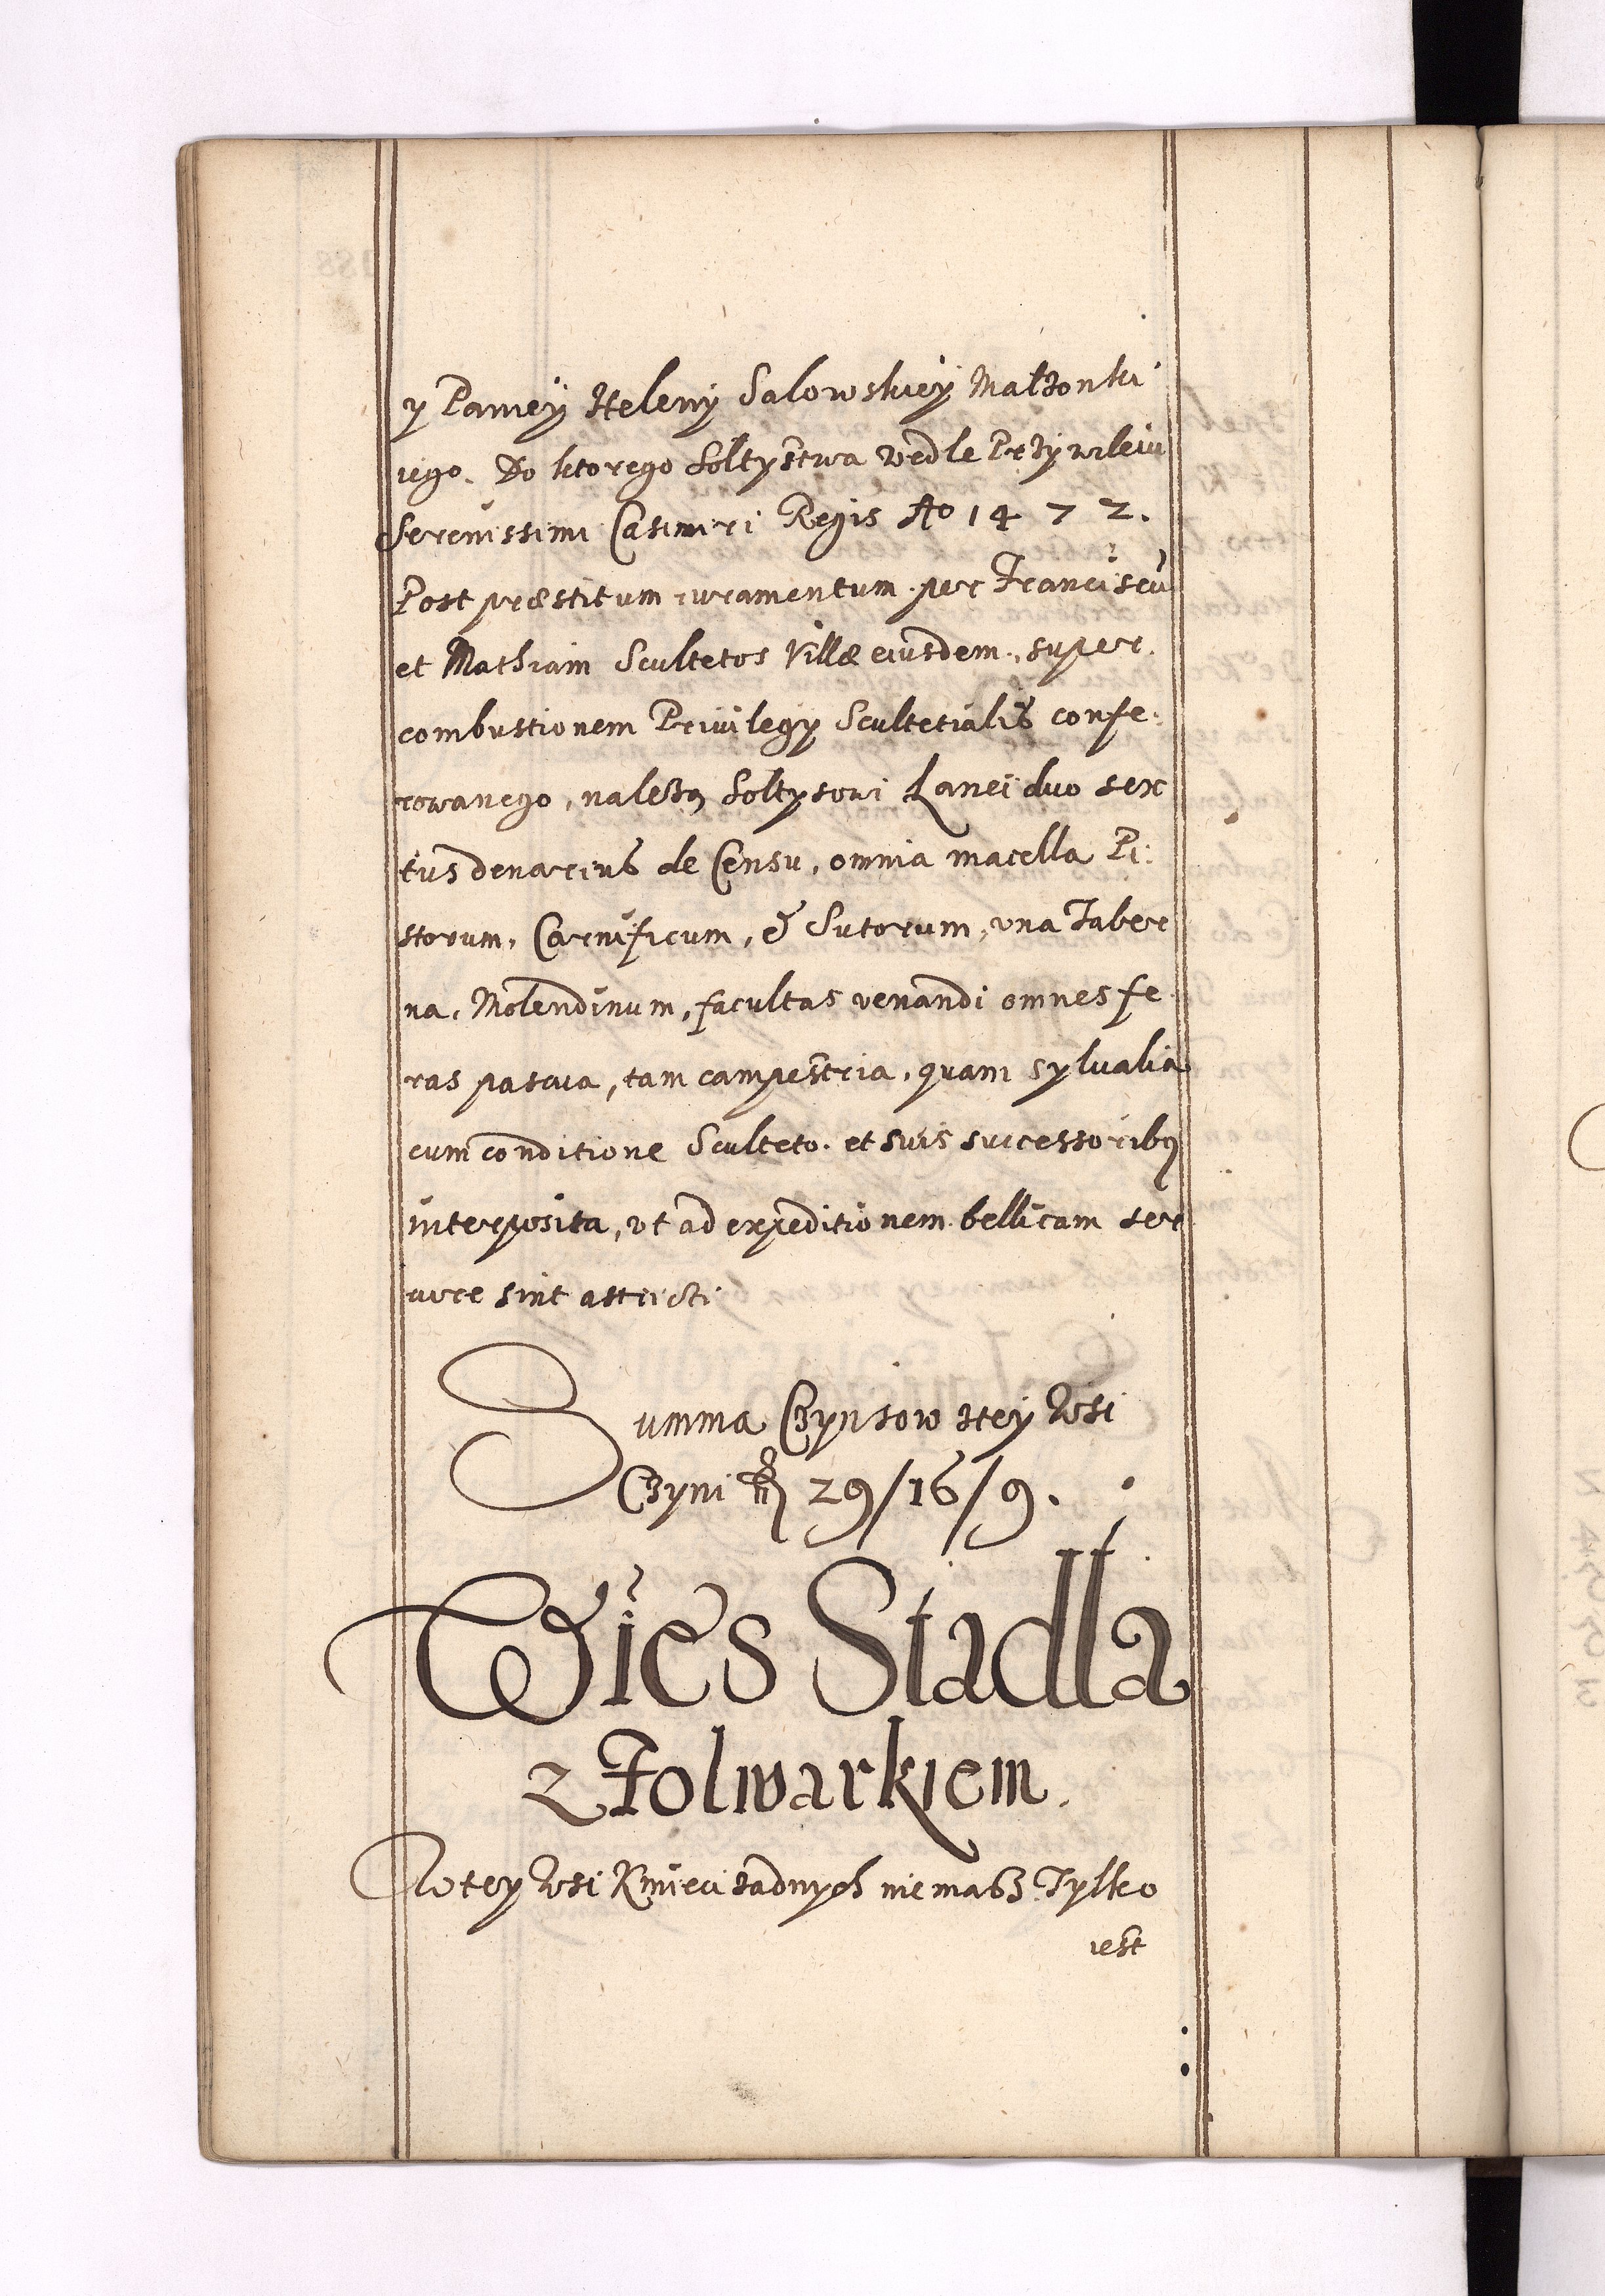 y Paniey Heleny Salowskiey Małżonki
iego. Do ktorego Sołtystwa wedle Przywileiu
Serenissimi Casimiri Regis Ao 1472.
Post præstitum iuramentum per Franciscū
et Mathiam Scultetos Villæ eiusdem, super
combustionem Privilegy Scultetialis confe:
rowanego, należą Sołtysowi Lanei duo sex
tus denarius de Censu, omnia macella Pi:
storum, Carnificum, & Sutorum, una Taber
na, Molendinum, facultas venandi omnes fe
ras pascua, tam campestria, quam sylvalia
cum conditione Sculteto et suis successoribq
interposita, ut ad expeditionem bellicam ser
uire sint astricti
Summa Czynsow tey Wsi
Czyni 29/16/9.
Wies Stadla
z Folwarkiem.
W tey Wsi Kmieci żadnych niemasz Tylko
iest